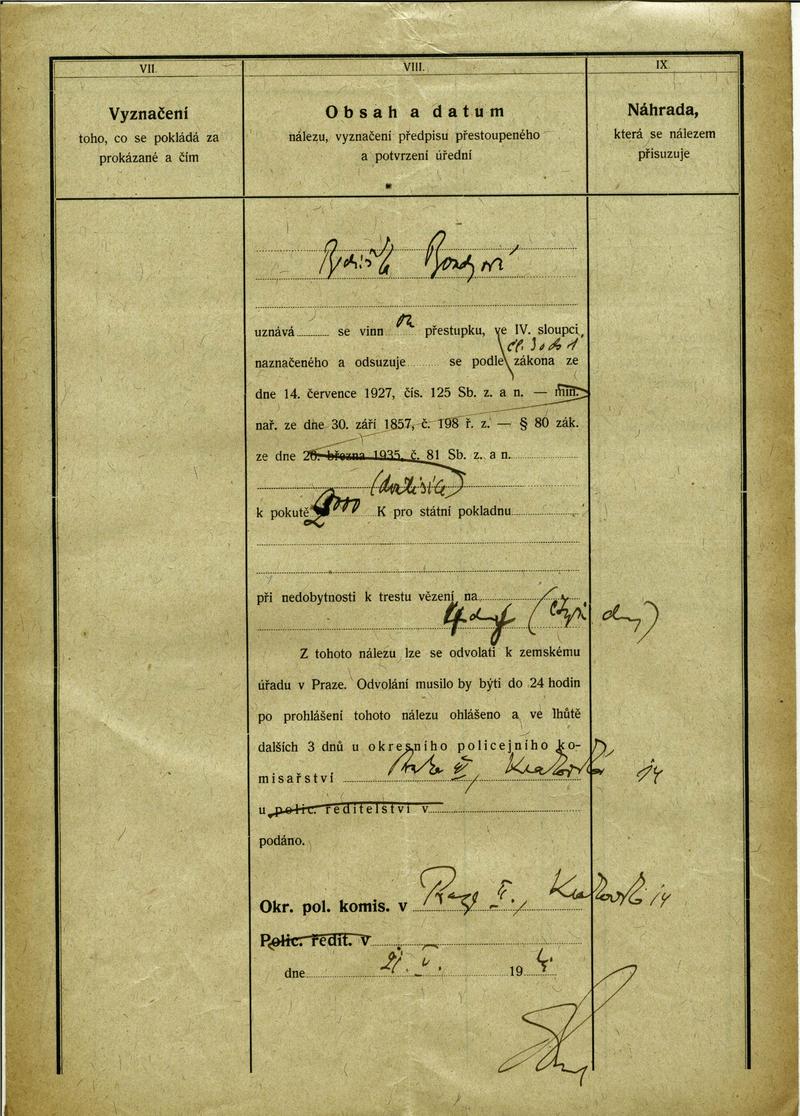 VII.
Vyznačení
toho, co se pokládá za
prokázané a čím
VIII.
Obsah a datum
nálezu, vyznačení předpisu přestoupeného
a potvrzení úřední
IX.
Náhrada,
která se nálezem
přisuzuje
Bondyová
uznává se vinnou přestupku, ve IV. sloupci
čl. 3 odst. 1
naznačeného a odsuzuje se podle zákona ze
dne 14. července 1927, čís. 125 Sb. z. a n. — min.
nař. ze dne 30. září 1857, č. 198 ř. z. — § 80 zák.
ze dne 26. března 1935, č. 81 Sb. z. a n.
(dvatisíce)
k pokutě 2000 K pro státní pokladnu
při nedobytnosti k trestu vězení na
4 dny (čtyři dny)
Z tohoto nálezu lze se odvolati k zemskému
úřadu v Praze. Odvolání musilo by býti do 24 hodin
po prohlášení tohoto nálezu ohlášeno a ve lhůtě
dalších 3 dnů u okresního policejního ko-
misařství Praha II, Krakovská 14
u polic. ředitelství v
podáno.
Okr. pol. komis. v Praze II., Krakovská 14
Polic. ředit. v
dne 21. V. 194